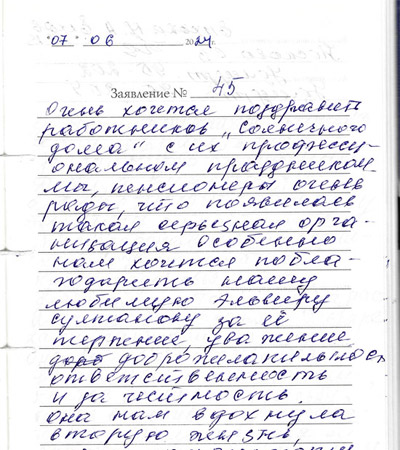 "07" 06 2024г.
Заявление № 45
Очень хочется поздравить
работников „Солнечного
дома" с их професси-
ональным праздником.
мы, пенсионеры очень
рады, что появилась
такая серьезная орга-
низация Особенно
нам хочется побла-
годарить нашу
любимую Эльвиру
султановну за её
терпение, уважение
доброжелательность
ответственность
и за честность.
она нам вдохнула
вторую жизнь,